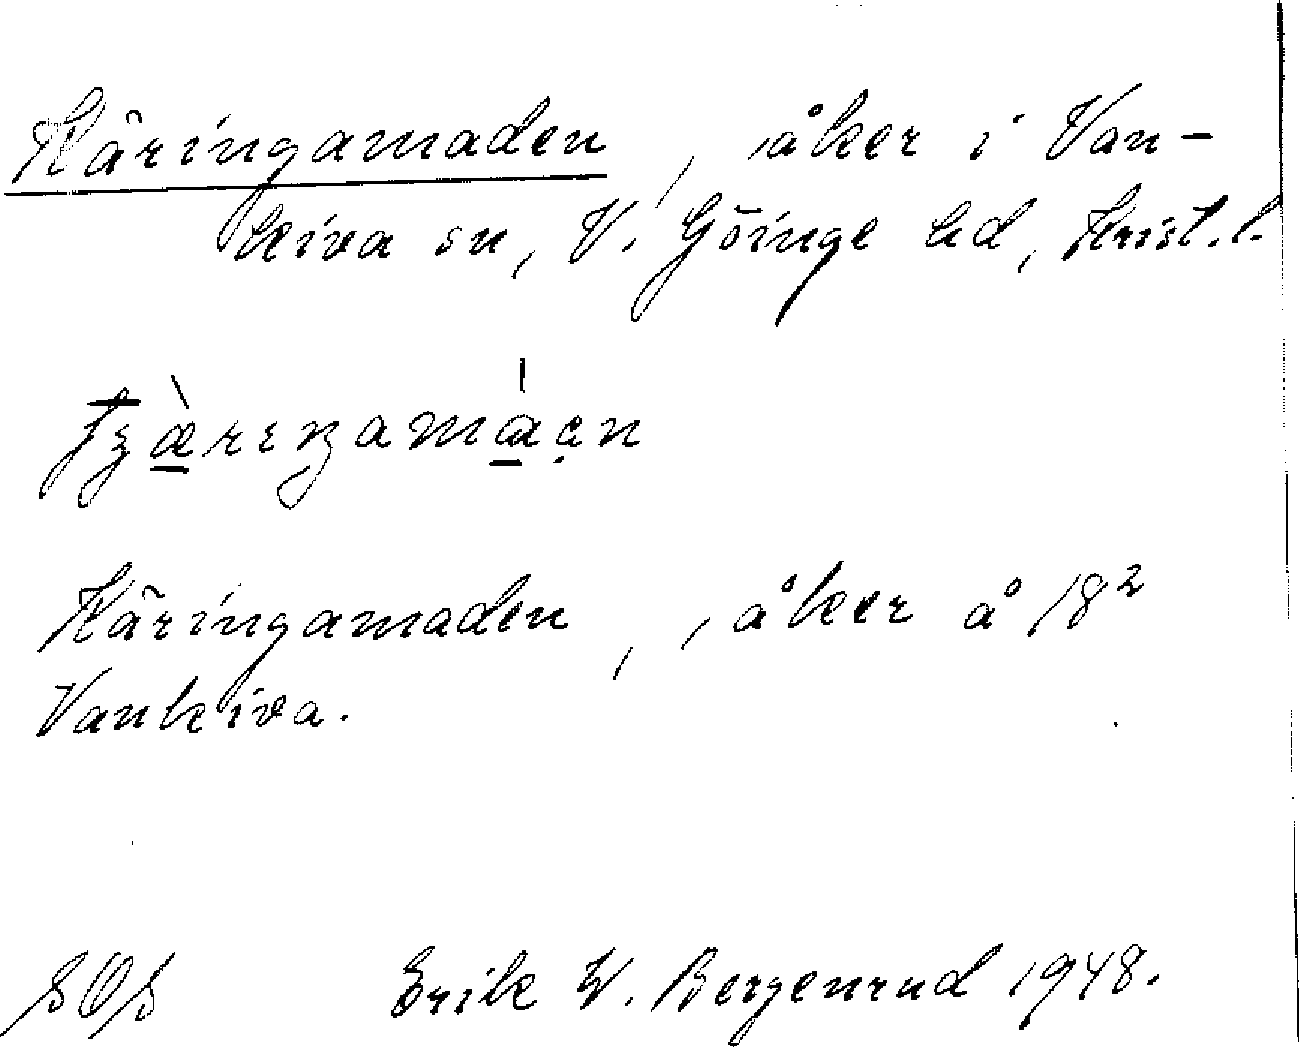 Käringamaden, åker i Van-
kiva sn, V. Göinge hd, Krist.l.
Käringamaden, åker å 18²
Vankiva.
SOS Erik W. Bergenrud 1948.